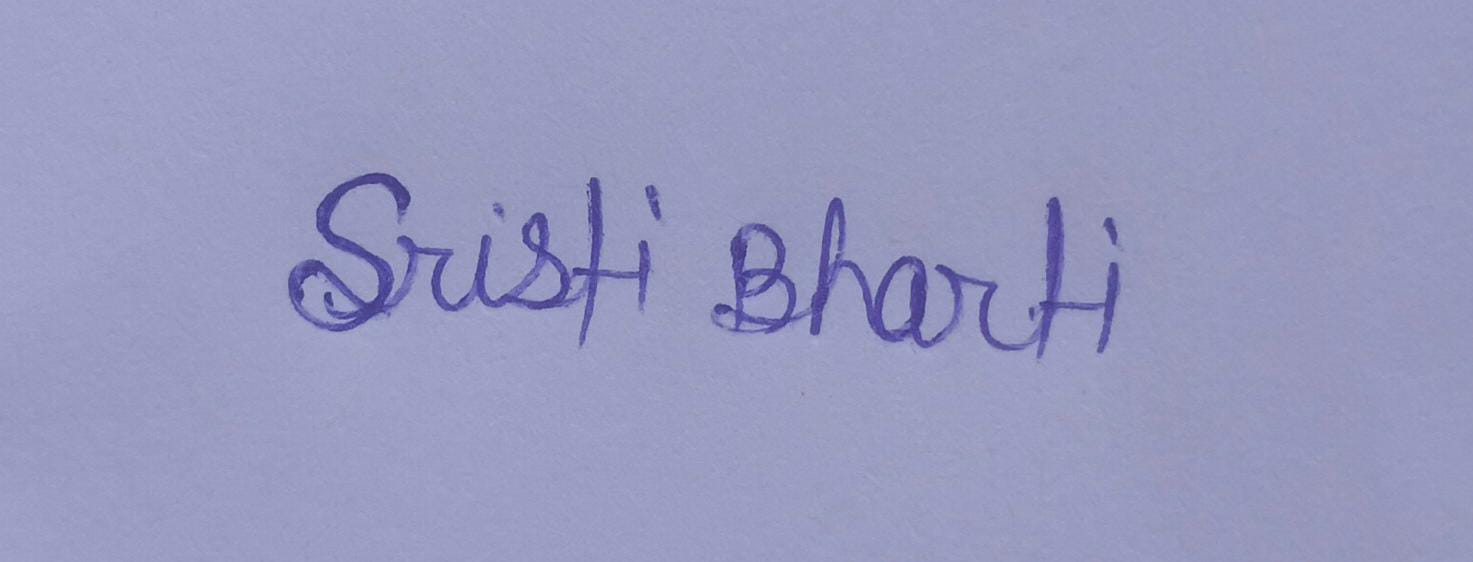 Sristi Bharti